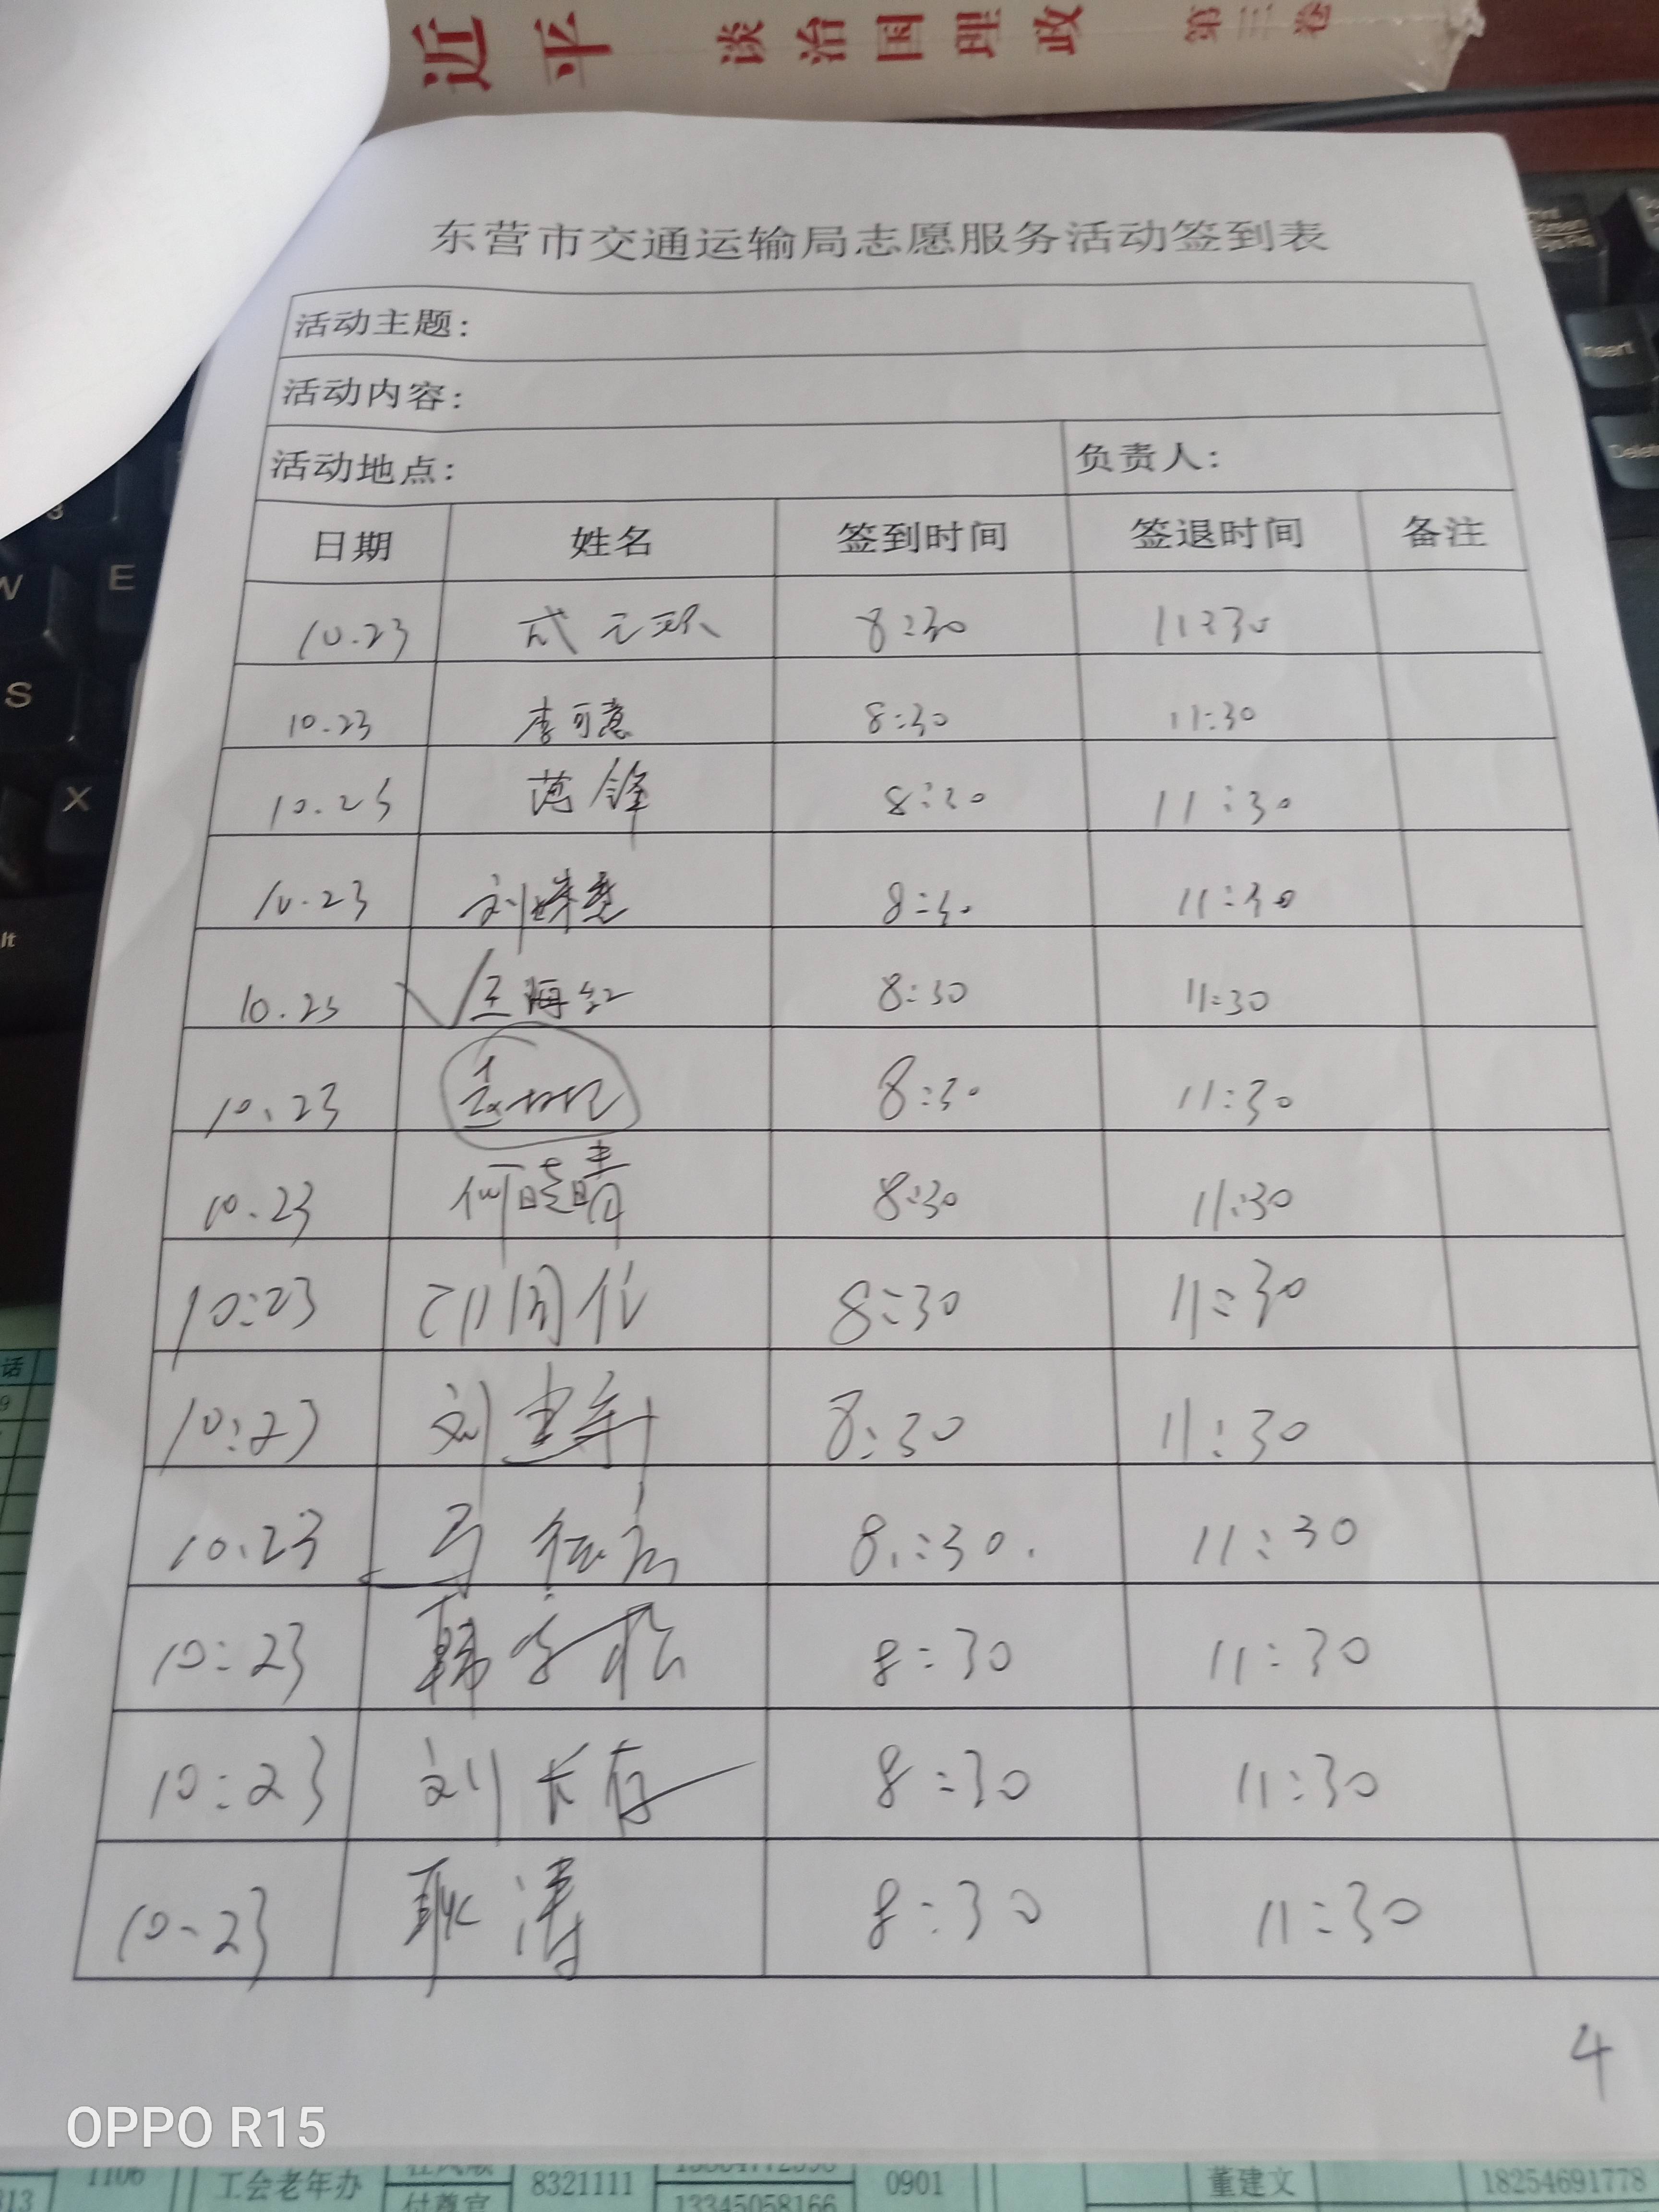 近平 谈治国理政 第三卷
东营市交通运输局志愿服务活动签到表
活动主题:
活动内容:
活动地点: 负责人:
日期 姓名 签到时间 签退时间 备注
10.23 8:30 11:30
10.23 李可意 8:30 11:30
10.23 范锋 8:30 11:30
10.23 刘 8:30 11:30
10.23 王海红 8:30 11:30
10.23 8:30 11:30
10.23 何晓晴 8:30 11:30
10:23 8:30 11:30
10:23 刘建军 8:30 11:30
10.23 8:30 11:30
10:23 韩 松 8:30 11:30
10:23 刘长存 8:30 11:30
10-23 耿涛 8:30 11:30
4
OPPO R15
1106 工会老年办 8321111 0901 董建文 18254691778
13345058166
W
E
S
X
Insert